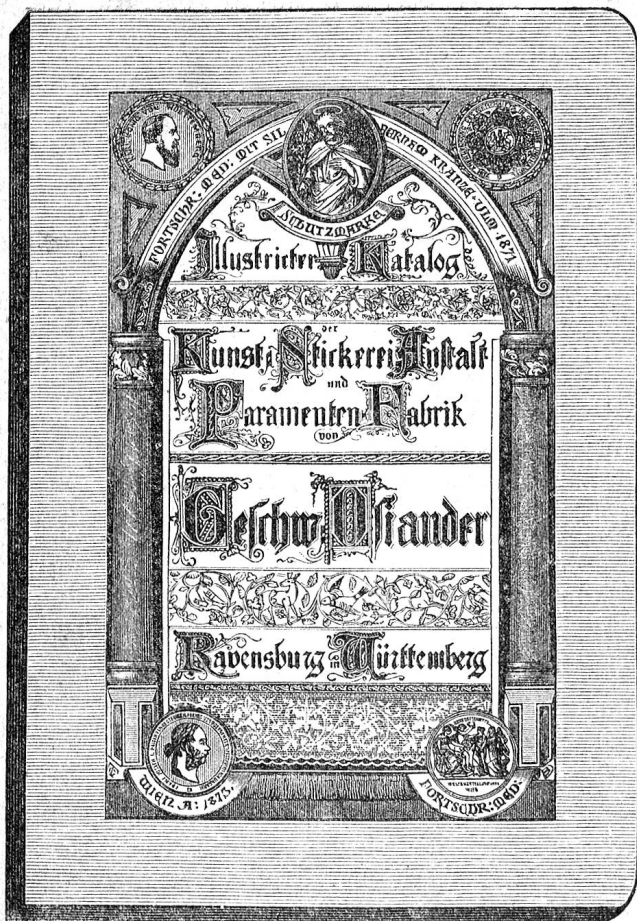 FORTSCHR: MED: MIT SIL BERNEM KRANZE · ULM 1871
SCHUTZMARKE
Illustrirter Katalog
der
Kunst-Stickerei-Anstalt
und
Paramenten-Fabrik
von
Geschw. Osiander
Ravensburg in Württemberg
WIEN A: 1873.
FORTSCHR: MED: